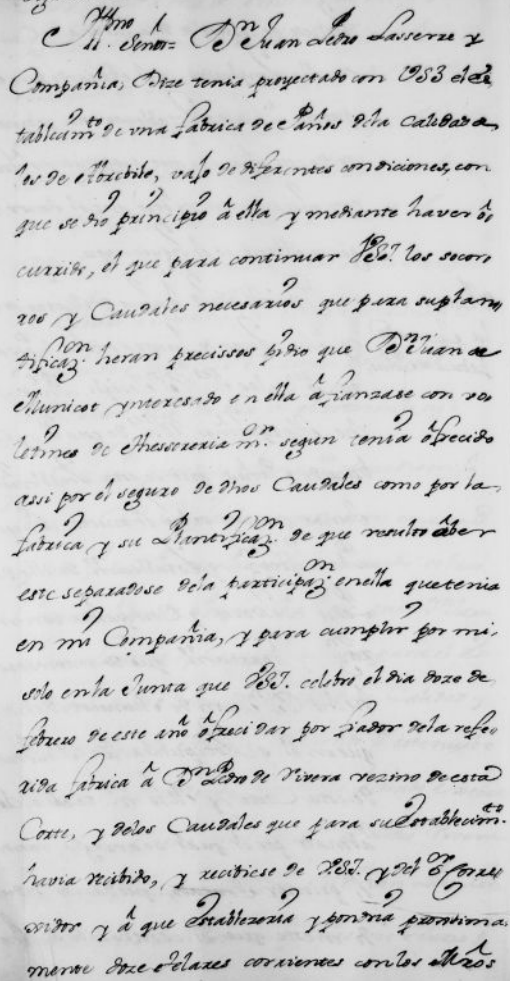 Yll.mo Señor= D.n Juan Pedro Lasserre y
Compañia, Dize tenia proyectado con VSJ el es
tablecim.to de vna fabrica de Paños dela Calidad
les de vajo de diferentes condiciones, con
que se dio principio â ella y mediante haver ô
currido, el que para continuar VSJ. los socor,
ros y Caudales necesarios que para su plan
tificaz.on heran precissos pidio que D.n Juan de
Municot ynteresado en ella âfianzase con vo
letines de thessoreria m.or segun tenia ôfrecido
assi por el seguro de dhos Caudales como por la,
fabrica y su Plantificaz.on de que resulto âber
este separadose dela partizipaz.on en ella que tenia
en mi Compañia, y para cumplir por mi,
solo en la Junta que VSJ. celebró el dia doze de
febrero de este año ôfreci dar por fiador dela refe
rida fabrica â D.n Pedro de Vivera vezino de esta
Corte, y delos Caudales que para su establecim.to
havia recibido, y recibiese de VSJ. y del S.or Corre
xidor y â que establezeria y pondria prontima
mente doze telares corrientes con los Mrôs